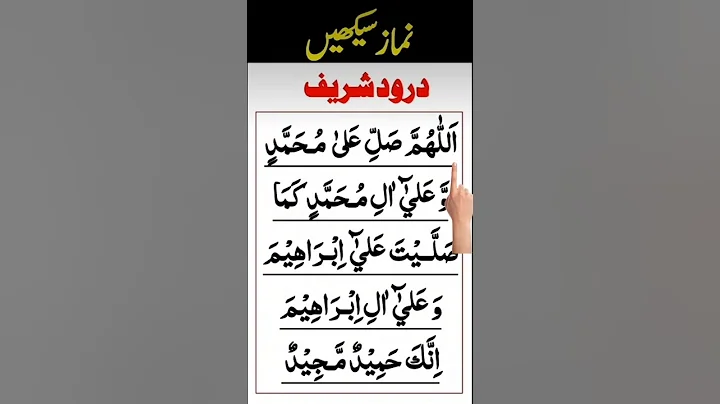 نماز سیکھیں
درود شریف
اَللّٰهُمَّ صَلِّ عَلیٰ مُحَمَّدٍ
وَّ عَلٰۤي اٰلِ مُحَمَّدٍ كَمَا
صَلَّيْتَ عَلٰۤي اِبْرَاهِيْمَ
وَ عَلٰۤي اٰلِ اِبْرَاهِيْمَ
اِنَّكَ حَمِيْدٌ مَّجِيْدٌ